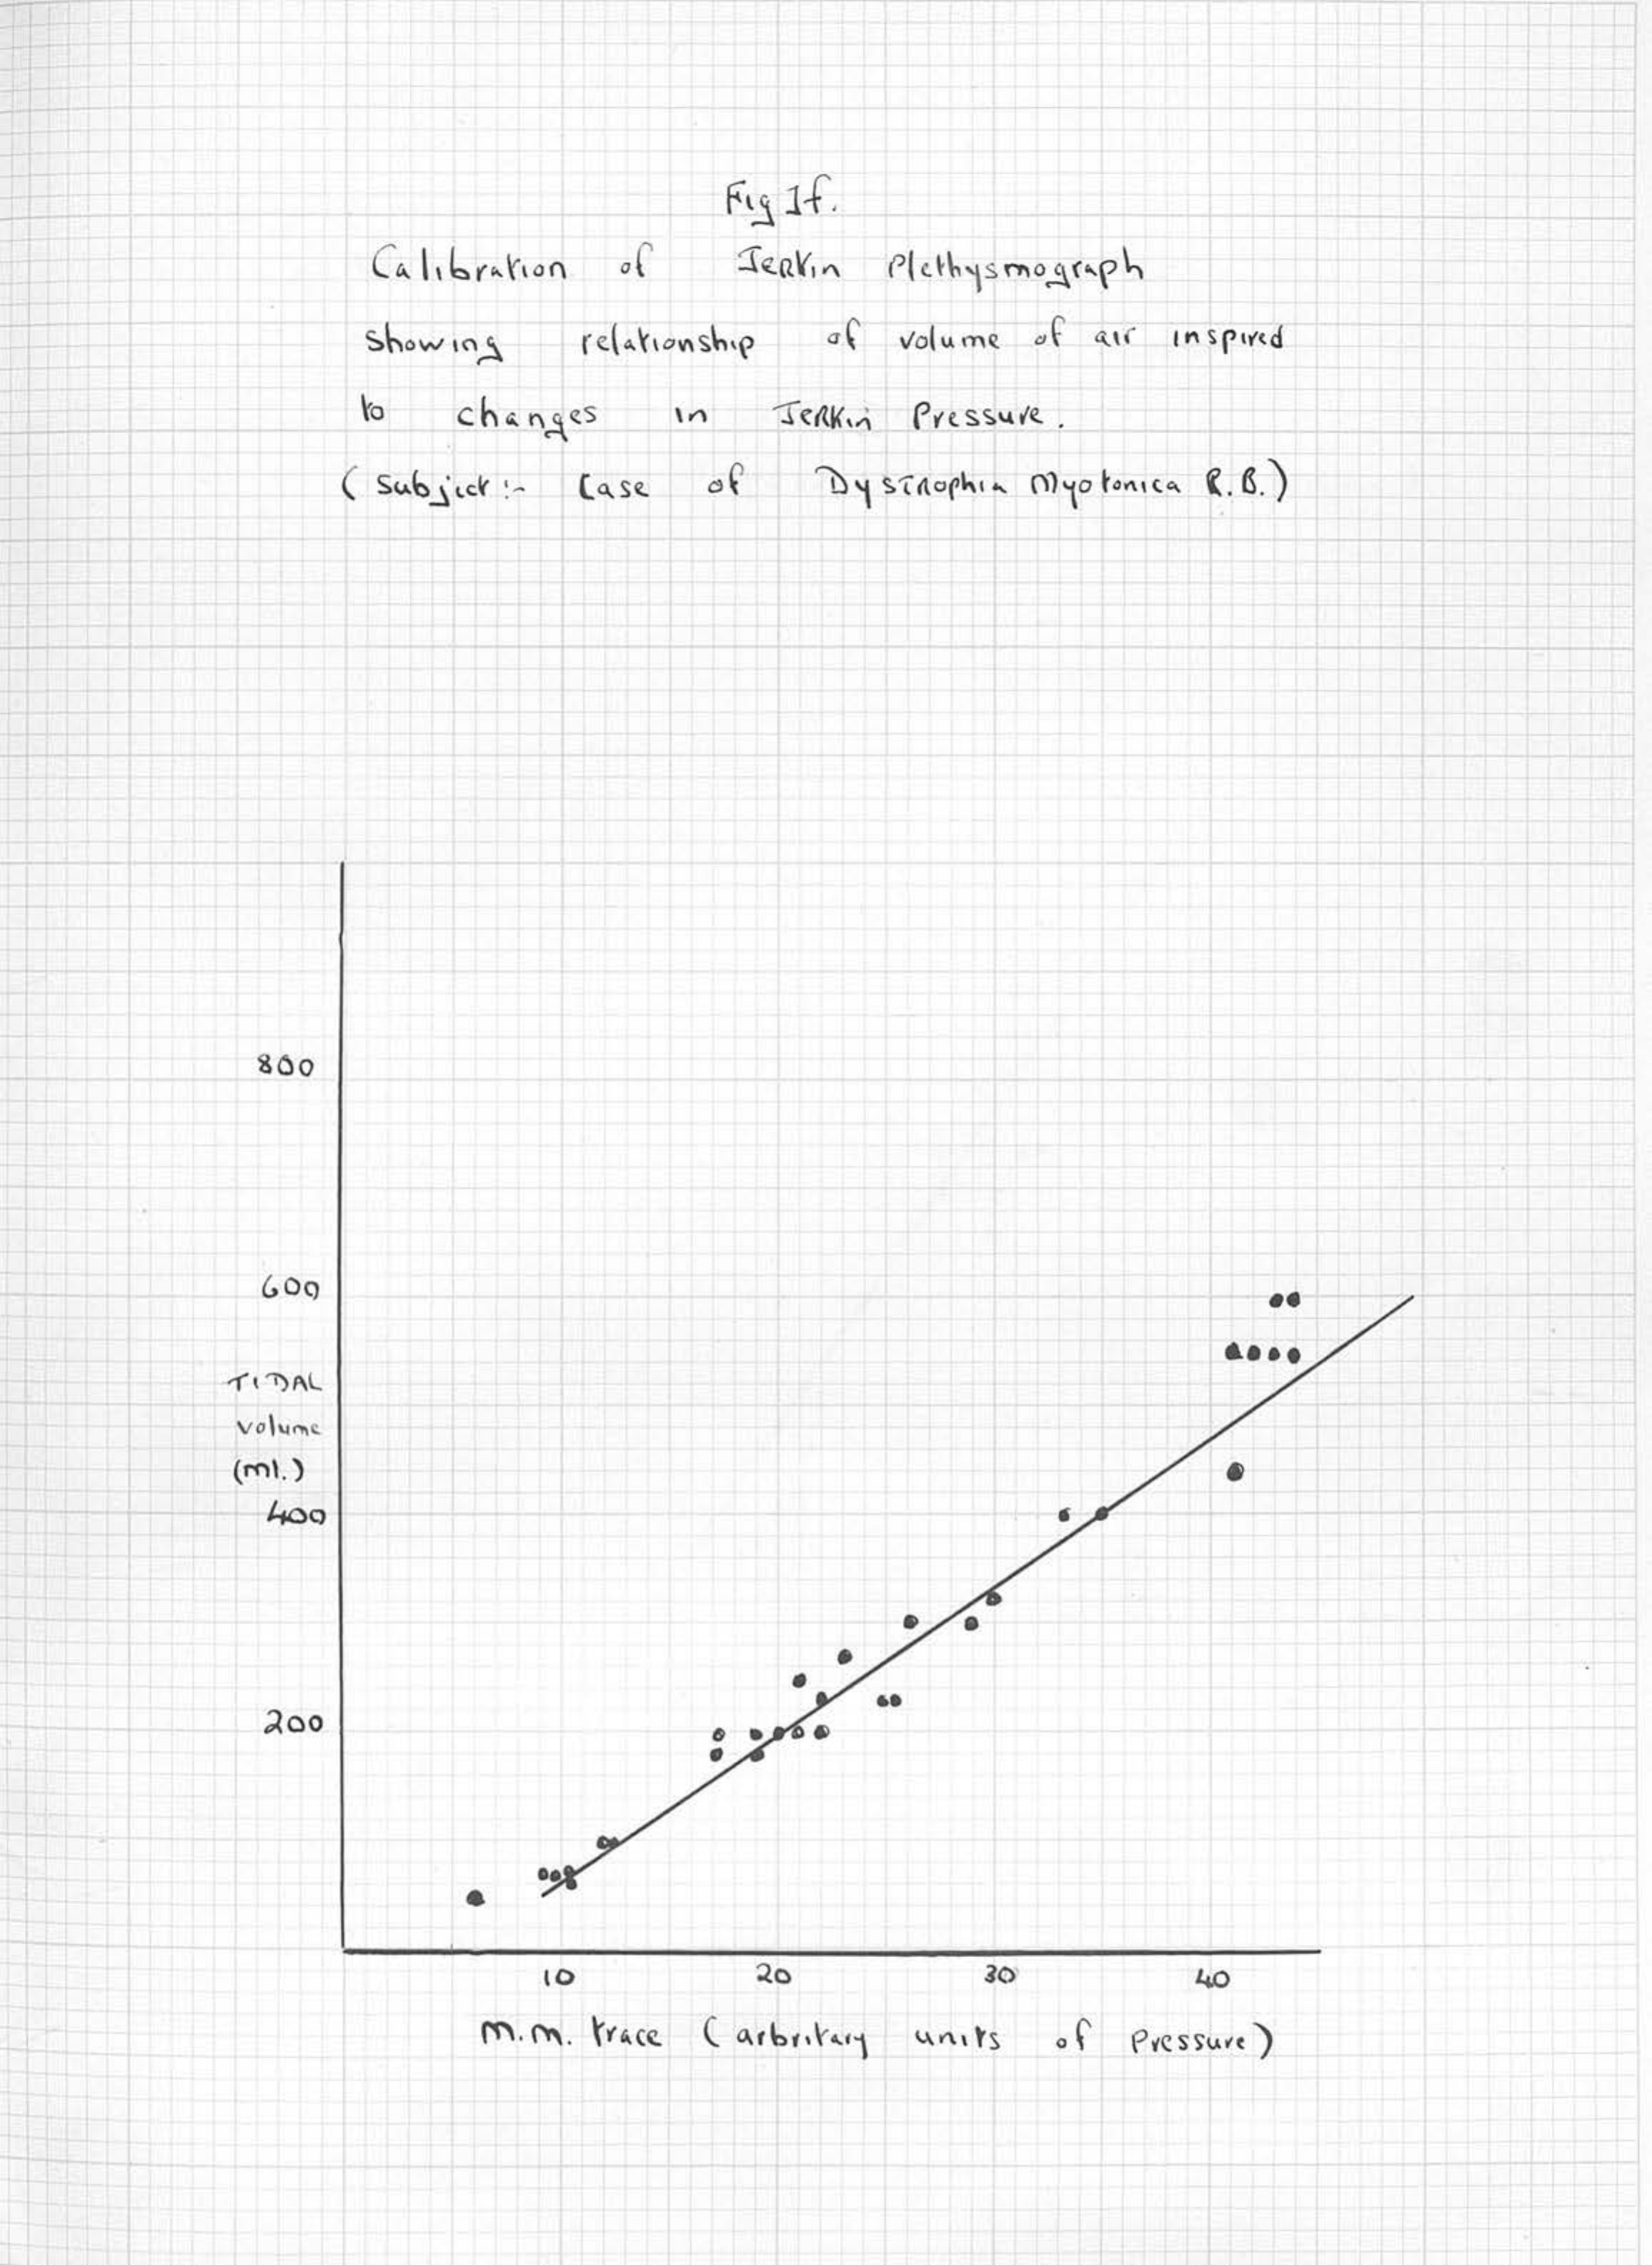 Fig 1f.
Calibration of Jerkin Plethysmograph
showing relationship of volume of air inspired
to changes in Jerkin Pressure.
(Subject:- Case of Dystrophia Myotonica R.B.)
800
600
TIDAL
volume
(ml.)
400
200
10 20 30 40
m.m. trace (arbritary units of Pressure)